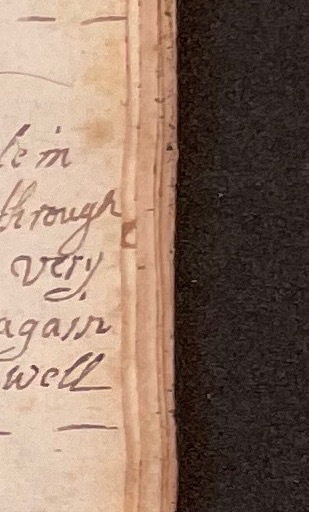 le in
through
very
again
well